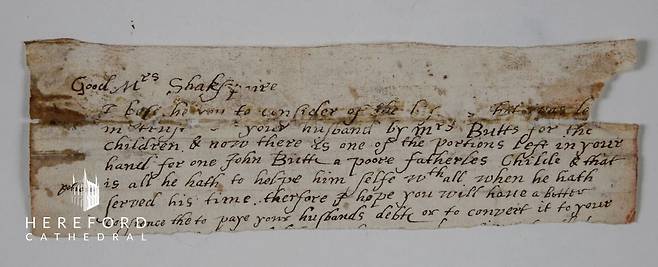 Good Mrs Shakspaire
I besee ch you to consider of the
in trust your husband by Mrs Butts for the
children & now there is one of the portions left in your
hand for one John Butte a poore fatherles Childe & that
is all he hath to helpe him selfe wthall when he hath
served his time therfore I hope you will have a better
the to paye your husbands debte or to convert it to your
HEREFORD
CATHEDRAL